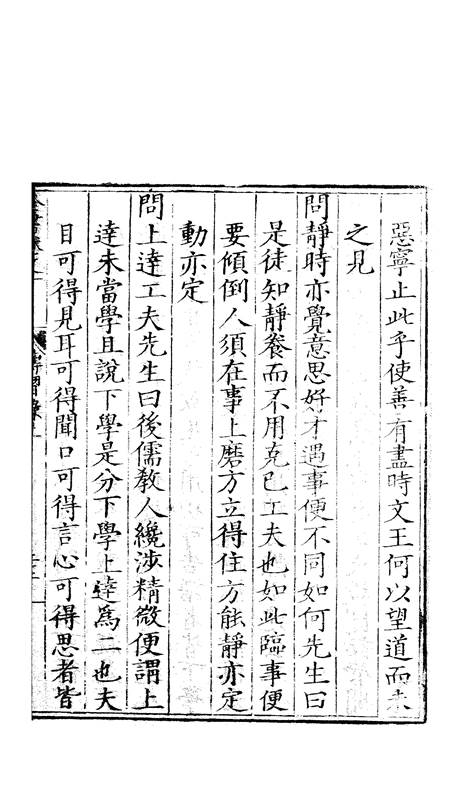 惡寧止此乎使善有盡時文王何以望道而未
之見
問靜時亦覺意思好才遇事便不同如何先生曰
是徒知靜養而不用克己工夫也如此臨事便
要傾倒人須在事上磨方立得住方能靜亦定
動亦定
問上達工夫先生曰後儒教人纔涉精微便謂上
達未當學且說下學是分下學上達爲二也夫
目可得見耳可得聞口可得言心可得思者皆